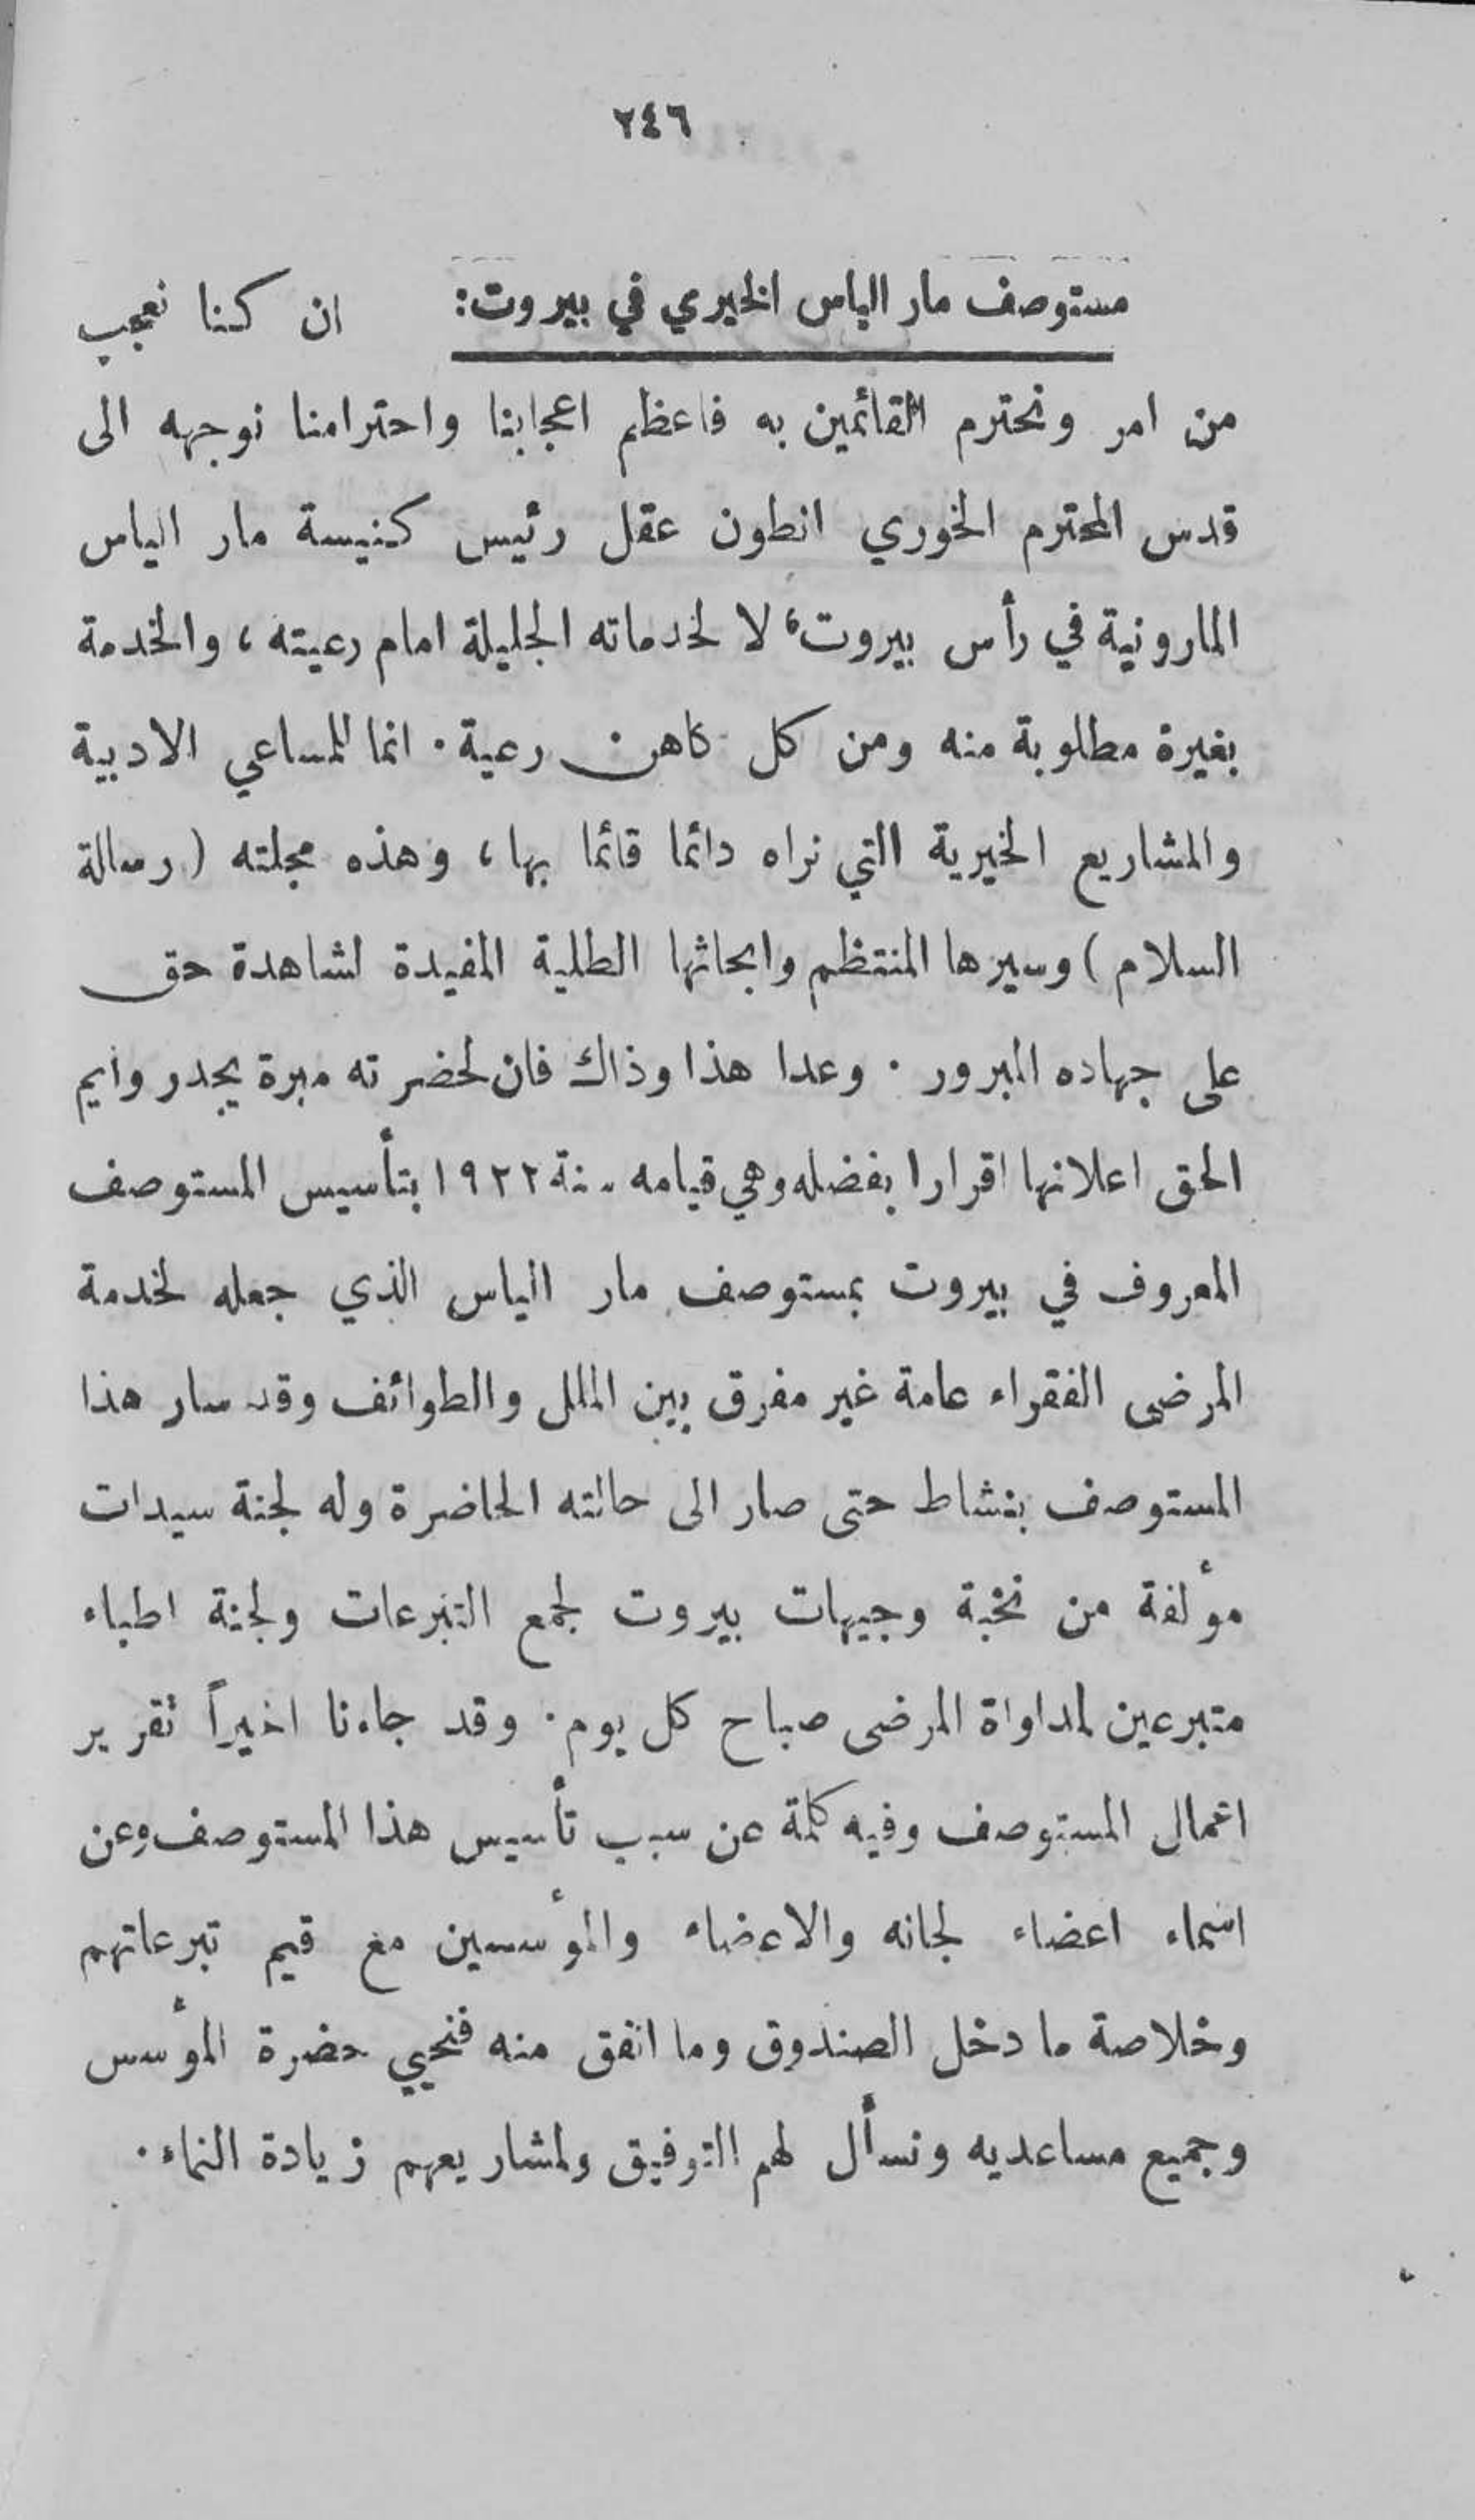 ٢٤٦
مستوصف مار الياس الخيري في بيروت: ان كنا نعجب
من امر ونحترم القائمين به فاعظم اعجابنا واحترامنا نوجهه الى
قدس المحترم الخوري انطون عقل رئيس كنيسة مار الياس
المارونية في رأس بيروت، لا لخدماته الجليلة امام رعيته، والخدمة
بغيرة مطلوبة منه ومن كل كاهن رعية. انما للمساعي الادبية
والمشاريع الخيرية التي نراه دائما قائما بها، وهذه مجلته (رسالة
السلام) وسيرها المنتظم وابحاثها الطلية المفيدة لشاهدة حق
على جهاده المبرور. وعدا هذا وذاك فان لحضرته مبرة يجدر وايم
الحق اعلانها اقرارا بفضله وهي قيامه سنة ١٩٢٢ بتأسيس المستوصف
المعروف في بيروت بمستوصف مار الياس الذي جعله لخدمة
المرضى الفقراء عامة غير مفرق بين الملل والطوائف وقد سار هذا
المستوصف بنشاط حتى صار الى حالته الحاضرة وله لجنة سيدات
مؤلفة من نخبة وجيهات بيروت لجمع التبرعات ولجنة اطباء
متبرعين لمداواة المرضى صباح كل يوم. وقد جاءنا اخيراً تقرير
اعمال المستوصف وفيه كلمة عن سبب تأسيس هذا المستوصف وعن
اسماء اعضاء لجانه والاعضاء والمؤسسين مع قيم تبرعاتهم
وخلاصة ما دخل الصندوق وما انفق منه فنحيي حضرة المؤسس
وجميع مساعديه ونسأل لهم التوفيق ولمشاريعهم زيادة النماء.